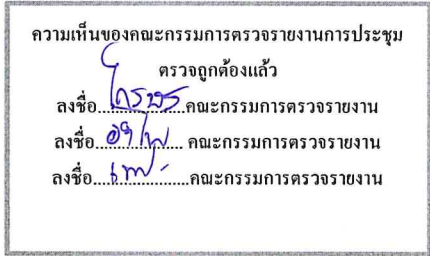 ความเห็นของคณะกรรมการตรวจรายงานการประชุม
ตรวจถูกต้องแล้ว
ลงชื่อ....................คณะกรรมการตรวจรายงาน
ลงชื่อ.................... คณะกรรมการตรวจรายงาน
ลงชื่อ....................คณะกรรมการตรวจรายงาน